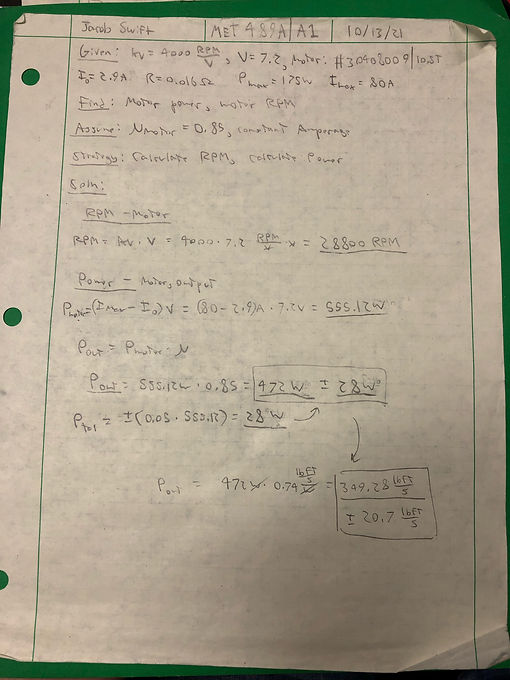 Jacob Swift MET 489A A1 10/13/21
Given: kv = 4000 RPM/V, V = 7.2, Motor: #30408009/10.5T
I₀ = 2.9A R = 0.016Ω Pmax = 175W Imax = 80A
Find: Motor power, motor RPM
Assume: Nmotor = 0.85, constant Amperage
Strategy: Calculate RPM, calculate Power
Soln:
RPM - Motor
RPM = kv · V = 4000 · 7.2 RPM/V · V = 28800 RPM
Power - Motor, output
Pmotor = (Imax - I₀)V = (80 - 2.9)A · 7.2V = 555.12W
Pout = Pmotor · N
Pout = 555.12W · 0.85 = 472W ± 28W
Ptol = ±(0.05 · 555.12) = 28W
Pout = 472W · 0.74 lbFT/s/W = 349.28 lbFT/s
± 20.7 lbFT/s